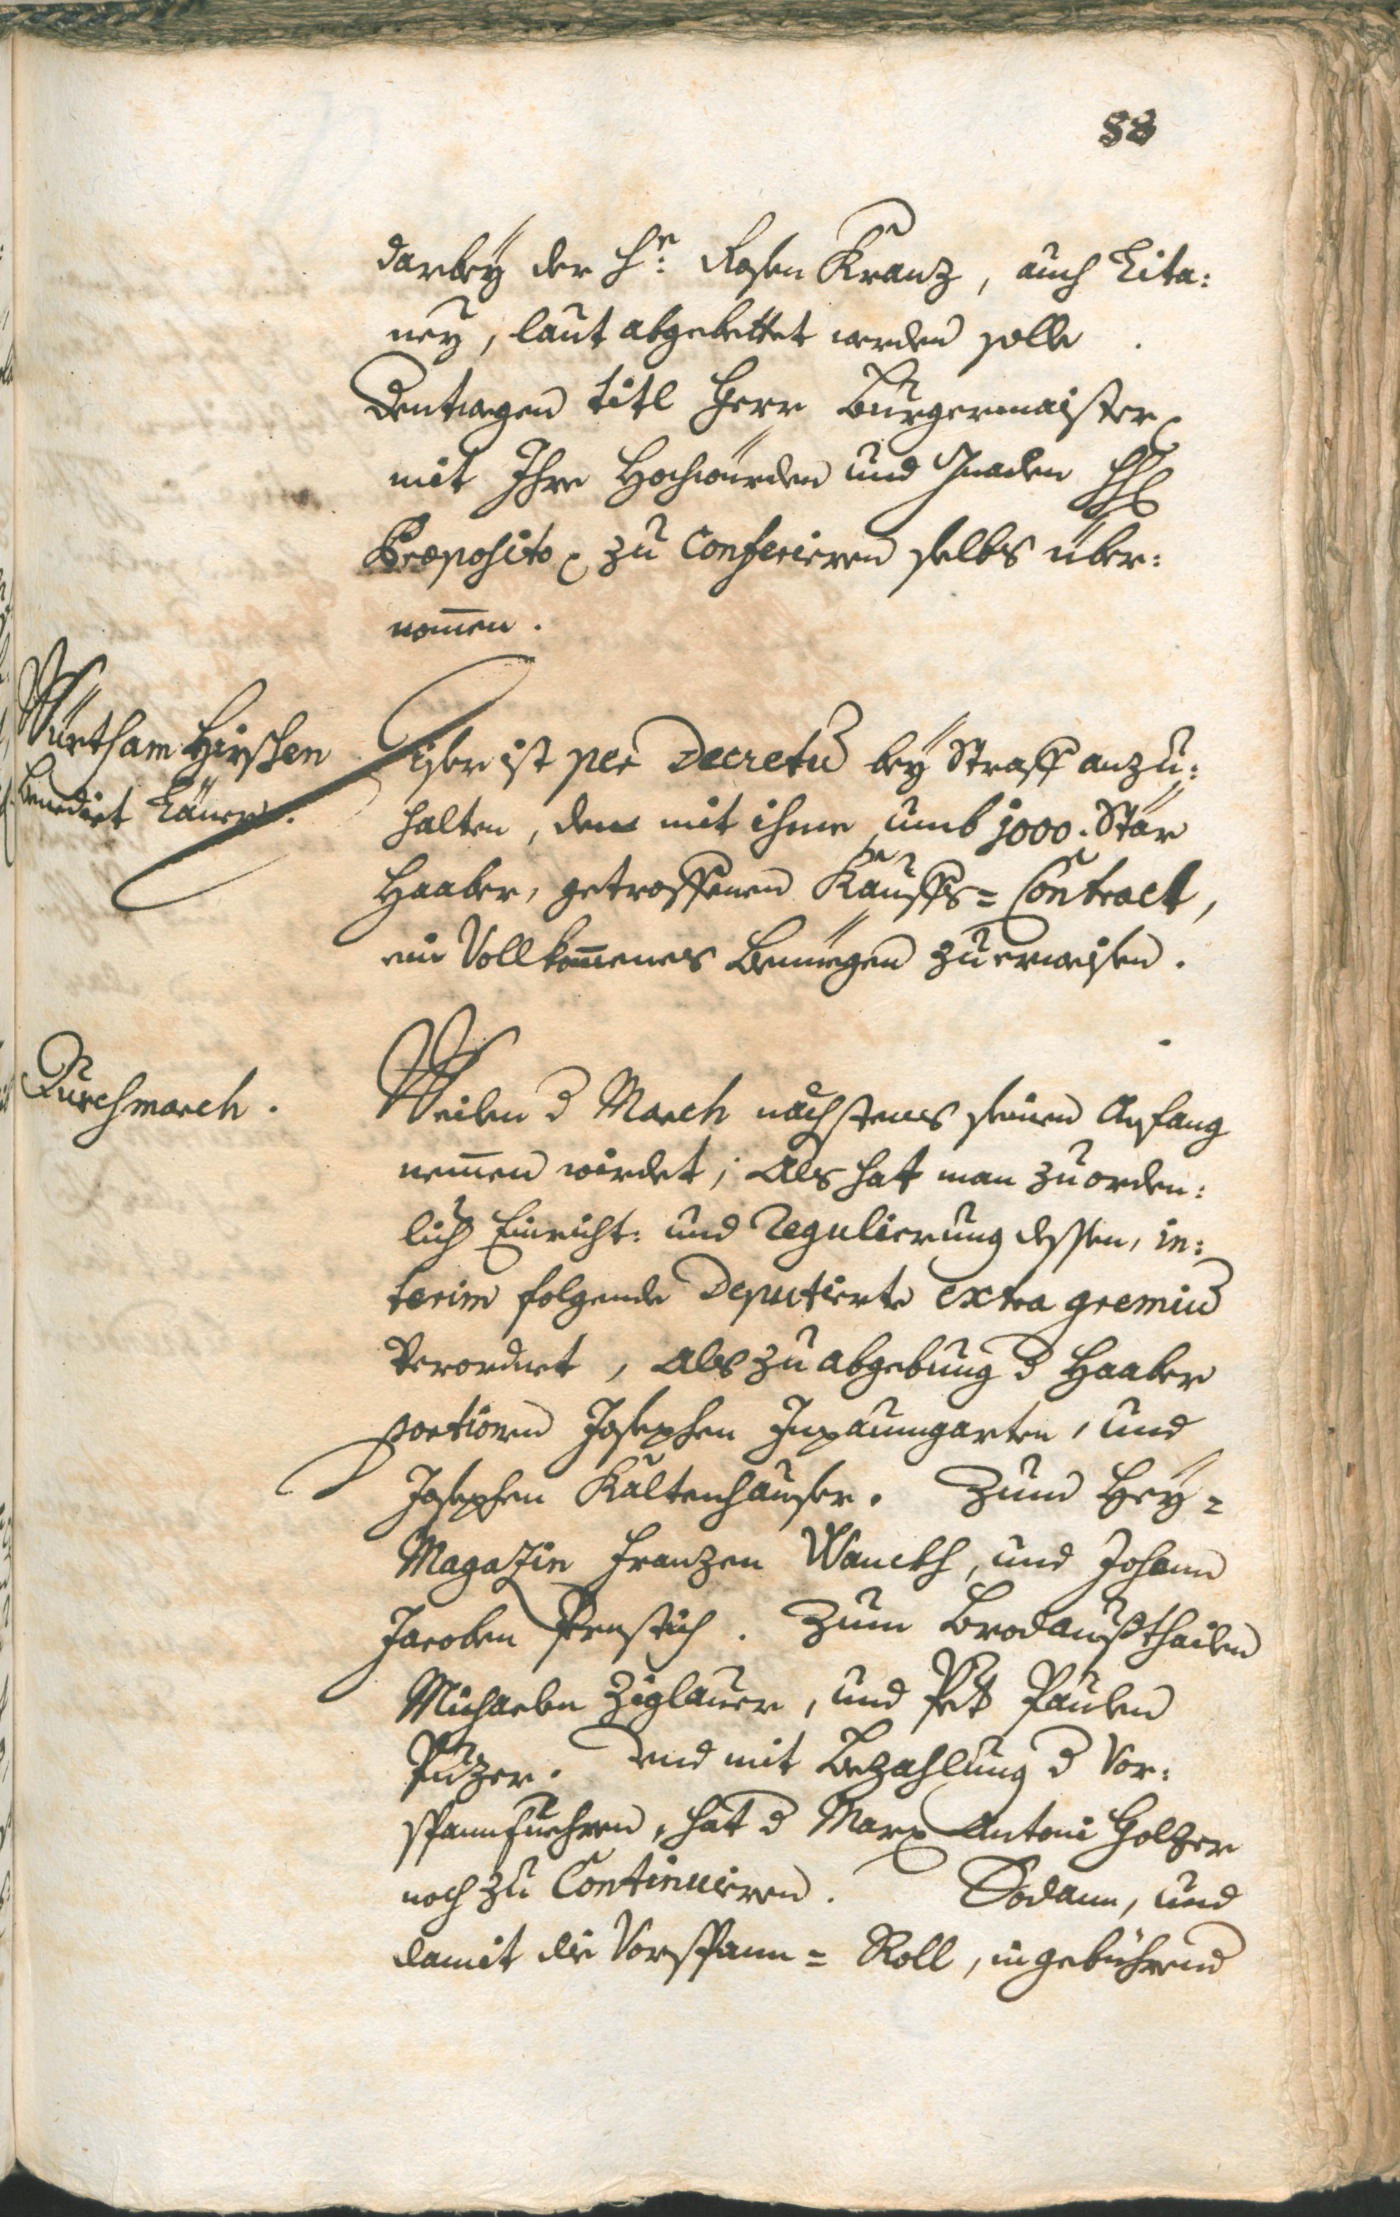 88
darbeÿ der h: Rosen Kranz, auch Lita:
neÿ, laut abgebettet werden solle.
Dentwegen titl Herr Burgermaister
mit Ihro Hochwürden und Gnaden
Præposito zu Conferieren selbs über:
nom̄en.
Würth am Hirschen
Benedict
iser ist per Decretu bey Straff anzu:
halten, dem mit ihme umb 1000. Stär
Haaber, getroffenen Kauffs= Contract,
ein Vollkom̄enes Benüegen zuerweisen.
Durchmarch.
Weilen d March nächstens seinen Anfang
nem̄en wirdet, Als hat man zu orden:
lich Einricht: und Regulierung dessen, in:
terim folgende Deputierte extra gremiu
Verordnet, als zu abgebung d Haaber
portionen Josephen Inpaumgarten, und
Josephen Kaltenhauser. Zum Heÿ=
Magazin Franzen Wanckh, und Johann
Jacoben Pernstich. Zum Brodaußthailen
Michaeln Ziglauer, und Pet Paulen
Puzer. und mit Bezahlung d Vor:
spannfuehren, hat d Marx Antoni Holzer
noch zu Continuieren. Sodann, und
damit die Vorspann= Roll, in gebührend